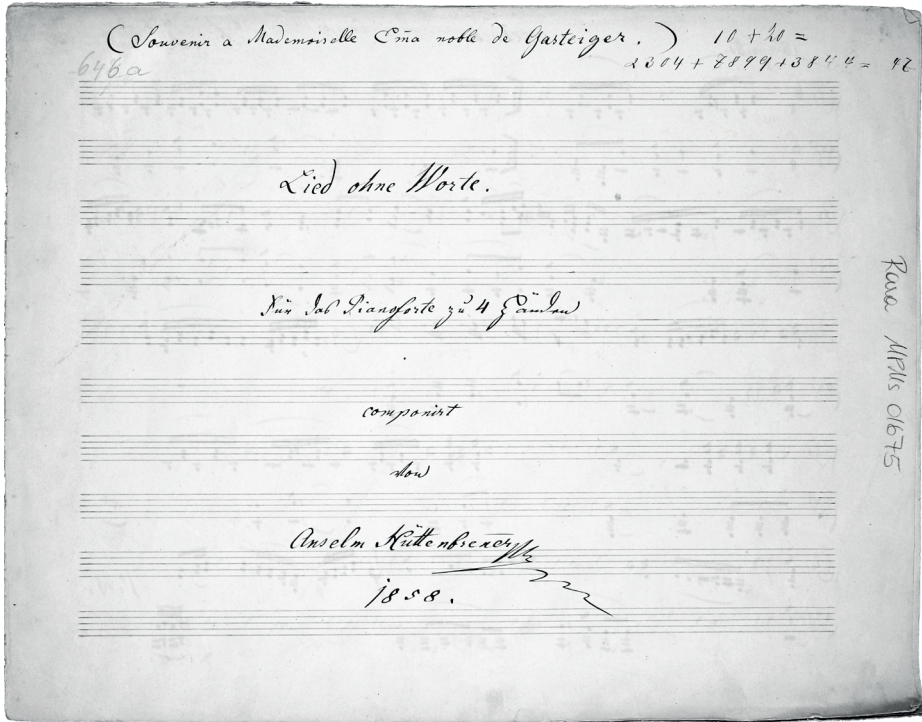 (Souvenir a Mademoiselle Em̄a noble de Gasteiger.) 10 + 20 =
646a
Lied ohne Worte.
Für das Pianoforte zu 4 Händen
componirt
von
Anselm Hüttenbrener
1858.
Rara MPMs 01675